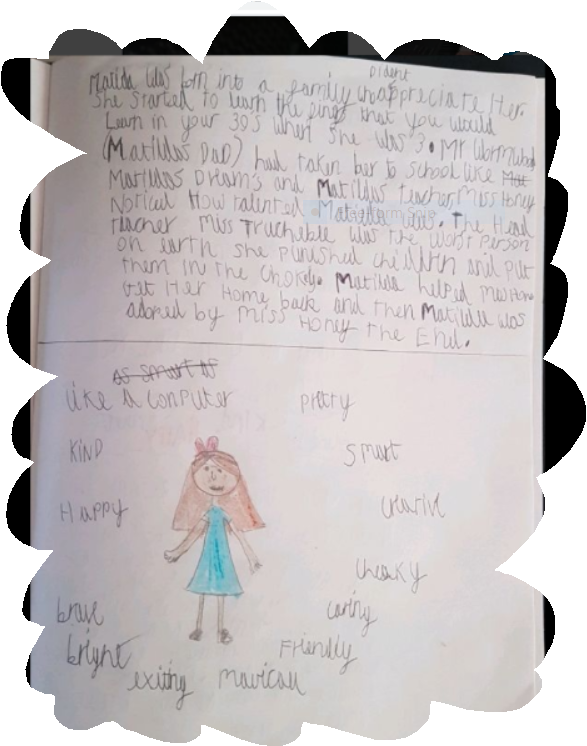 Dident
Matilda was born into a family who appreciate Her.
She started to learn the things that you would
Learn in your 30s when she was 3. Mr Wormwood
(Matildas Dad) had taken her to school like Mat
Matildas Dream's and Matildas teacher Miss Honey
Noticed How talented was. The Head
teacher Miss Truchebule was the worst person
on earth she punished children and put
them in the Chokey. Matilda helped Miss Hony
Get Her Home back and then Matilda was
adored by Miss Honey The End.
as smart as
Like a Computer
pretty
KIND
smart
Happy
creative
cheaky
brave
caring
bright
Friendly
exiting